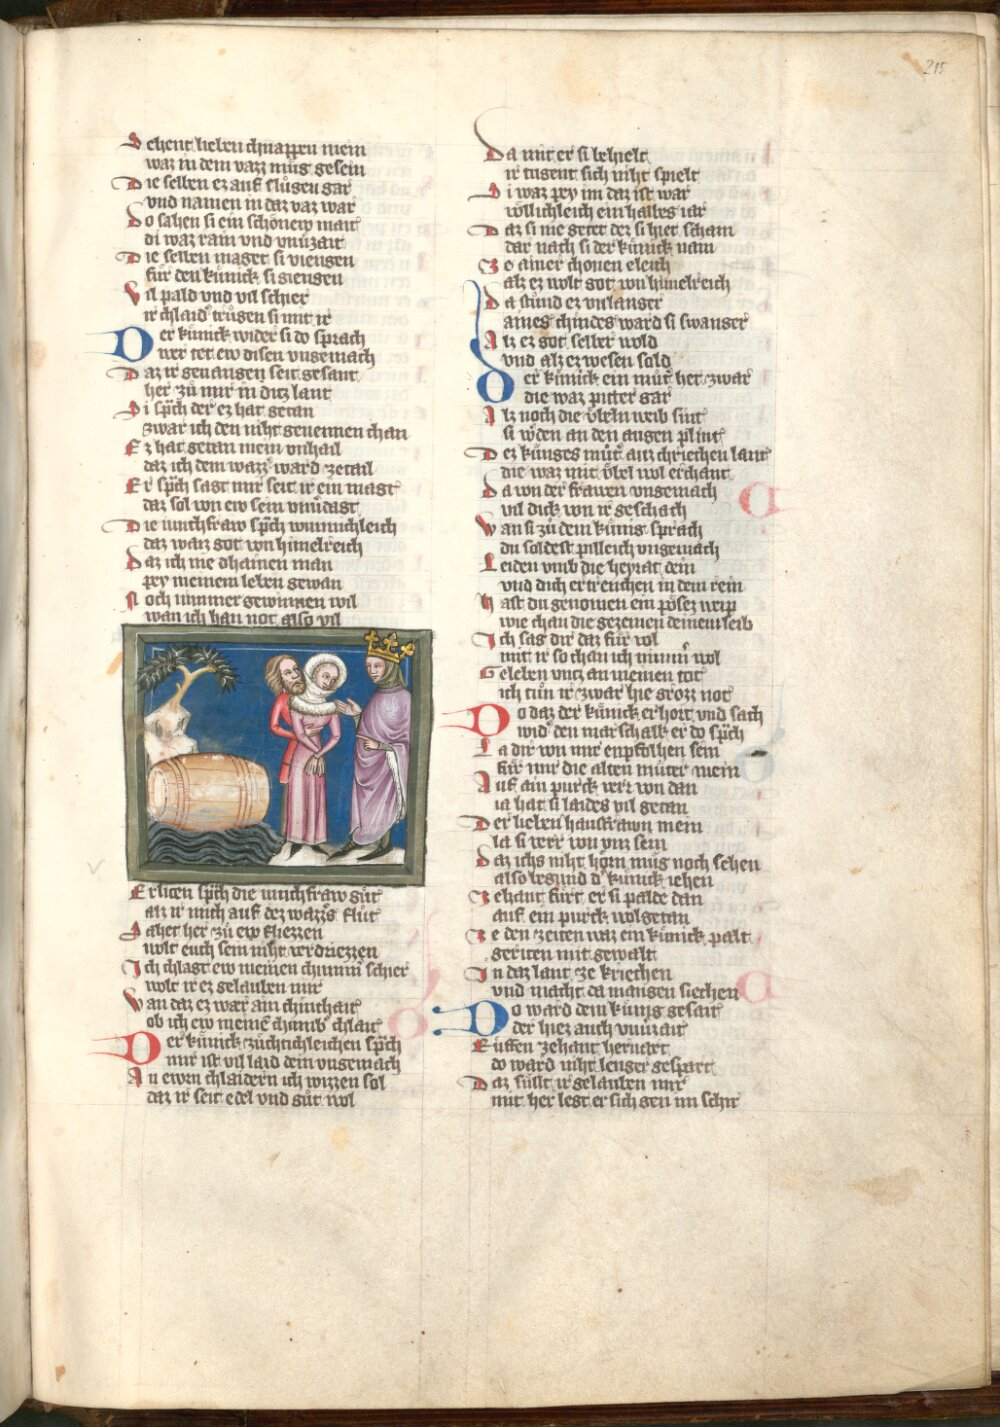 215
Sehent lieben chnappen mein
waz in dem vazz müg gesein
Die selben ez auf slügen gar
vnd namen in daz vaz war
Do sahen si ein schönew mait
di waz rain vnd vnuͤzait
Die selben maget si viengen
für den künick si giengen
Vil pald vnd vil schier
ir chlaid trügen si mit ir
Der künick wider si do sprach
wer tet ew disen vngemach
Daz ir geuangen seit gesant
her zü mir in ditz lant
Si sp̃ch der ez hat getan
zwar ich den niht genennen chan
Ez hat getan mein vnhail
daz ich dem wazz͛ ward zetail
Er sp̃ch sagt mir seit ir ein magt
daz sol von ew sein vnuͤ͛dagt
Die iunchfraw sp̃ch wunnichleich
daz waiz got von himelreich
Daz ich nie dhainen man
pey meinem leben gewan
Noch nimmer gewinnen wil
wan ich han not also vil
Erliten sp̃ch die iunchfraw güt
alz ir mich auf dez wazz͛s flüt
Sahet her zü ew fliezzen
wolt euch sein niht verdriezzen
Ich chlagt ew meinen chumm͛ schier
wolt ir ez gelauben mir
Wan daz ez wær ain chinthait
ob ich ew meinē chumb͛ chlait
Der künick züchtichleichen sp̃ch
mir ist vil laid dein vngemach
An ewrn chlaidern ich wizzen sol
daz ir seit edel vnd güt wol
Da mit er si behielt
ir tugent sich niht spielt
Si waz pey im daz ist war
völlichleich ein halbes iar
Daz si nie getet dez si hiet scham
dar nach si der künick nam
Ze ainer chonen eleich
alz ez wolt got von himelreich
Da stünd ez vnlanger
aines chindes ward si swanger
Alz ez got selber wold
vnd alz ez wesen sold
Der künick ein müt͛ het zwar
die waz pitter gar
Alz noch die übeln weib sint
si w͛den an den augen plint
Dez künges müt͛ auz chriechen lant
die waz mit übel wol erchant
Da von der frawen vngemach
vil dick von ir geschach
Wan si zü dem künig sprach
du soldest pilleich vngemach
Leiden vmb die heyrat dein
vnd dich ertrenchen in dem rein
Hast du genomen ein pösez weip
wie chan die gezemen deinem leib
Ich sag dir daz für wol
mit ir so chan ich nimm͛ wol
Geleben vntz an meinen tot
ich tün ir zwar hie grozz not
Do daz der künick erhort vnd sach
wid͛ den marschalk er do sp̃ch
La dir von mir enpfolhen sein
für mir die alten müter mein
Auf ain purck verr von dan
ia hat si laides vil getan
Der lieben hausfrawn mein
la si verr von vnz sein
Daz ichs niht hörn müg noch sehen
also begund d͛ künick iehen
Zehant fürt er si palde dan
auf ein purck wolgetan
Ze den zeiten waz ein künick palt
geriten mit gewalt
In daz lant ze kriechen
vnd macht da mangen siechen
Do ward dem künig gesait
der hiez auch vnuͤ͛zait
Rüffen zehant heruart
do ward niht lenger gespart
Daz sült ir gelauben mir
mit her legt er sich gen im schir